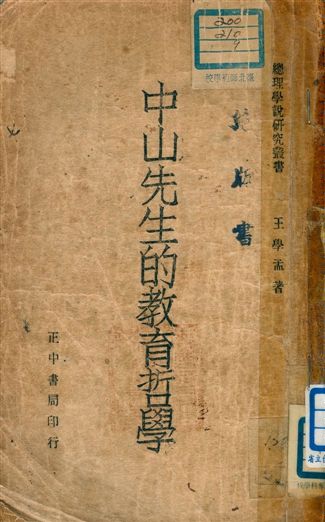 總理學說研究叢書 王學孟著
絕版書
中山先生的教育哲學
正中書局印行
200
210